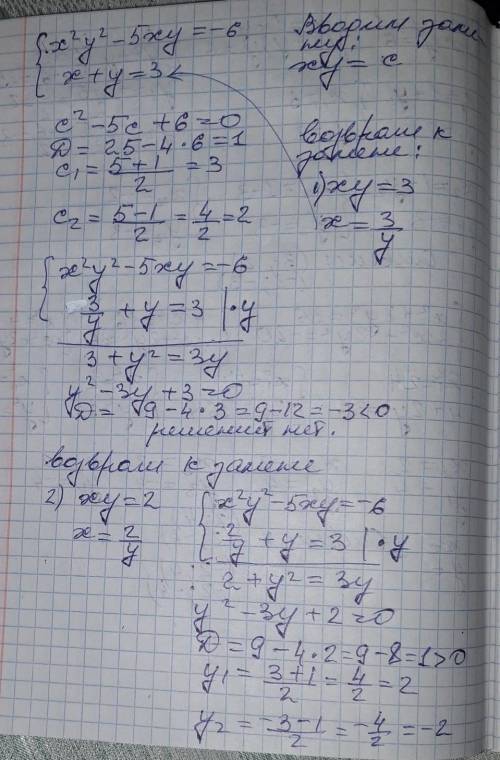 { x²y² - 5xy = -6
x + y = 3
Вводим заме
ну:
xy = c
c² - 5c + 6 = 0
D = 25 - 4·6 = 1
c₁ = (5+1)/2 = 3
c₂ = (5-1)/2 = 4/2 = 2
возврат к
замене:
1) xy = 3
x = 3/y
{ x²y² - 5xy = -6
3/y + y = 3 | ·y
3 + y² = 3y
y² - 3y + 3 = 0
D = 9 - 4·3 = 9 - 12 = -3 < 0
решений нет.
возврат к замене
2) xy = 2
x = 2/y
{ x²y² - 5xy = -6
2/y + y = 3 | ·y
2 + y² = 3y
y² - 3y + 2 = 0
D = 9 - 4·2 = 9 - 8 = 1 > 0
y₁ = (3+1)/2 = 4/2 = 2
y₂ = (-3-1)/2 = -4/2 = -2